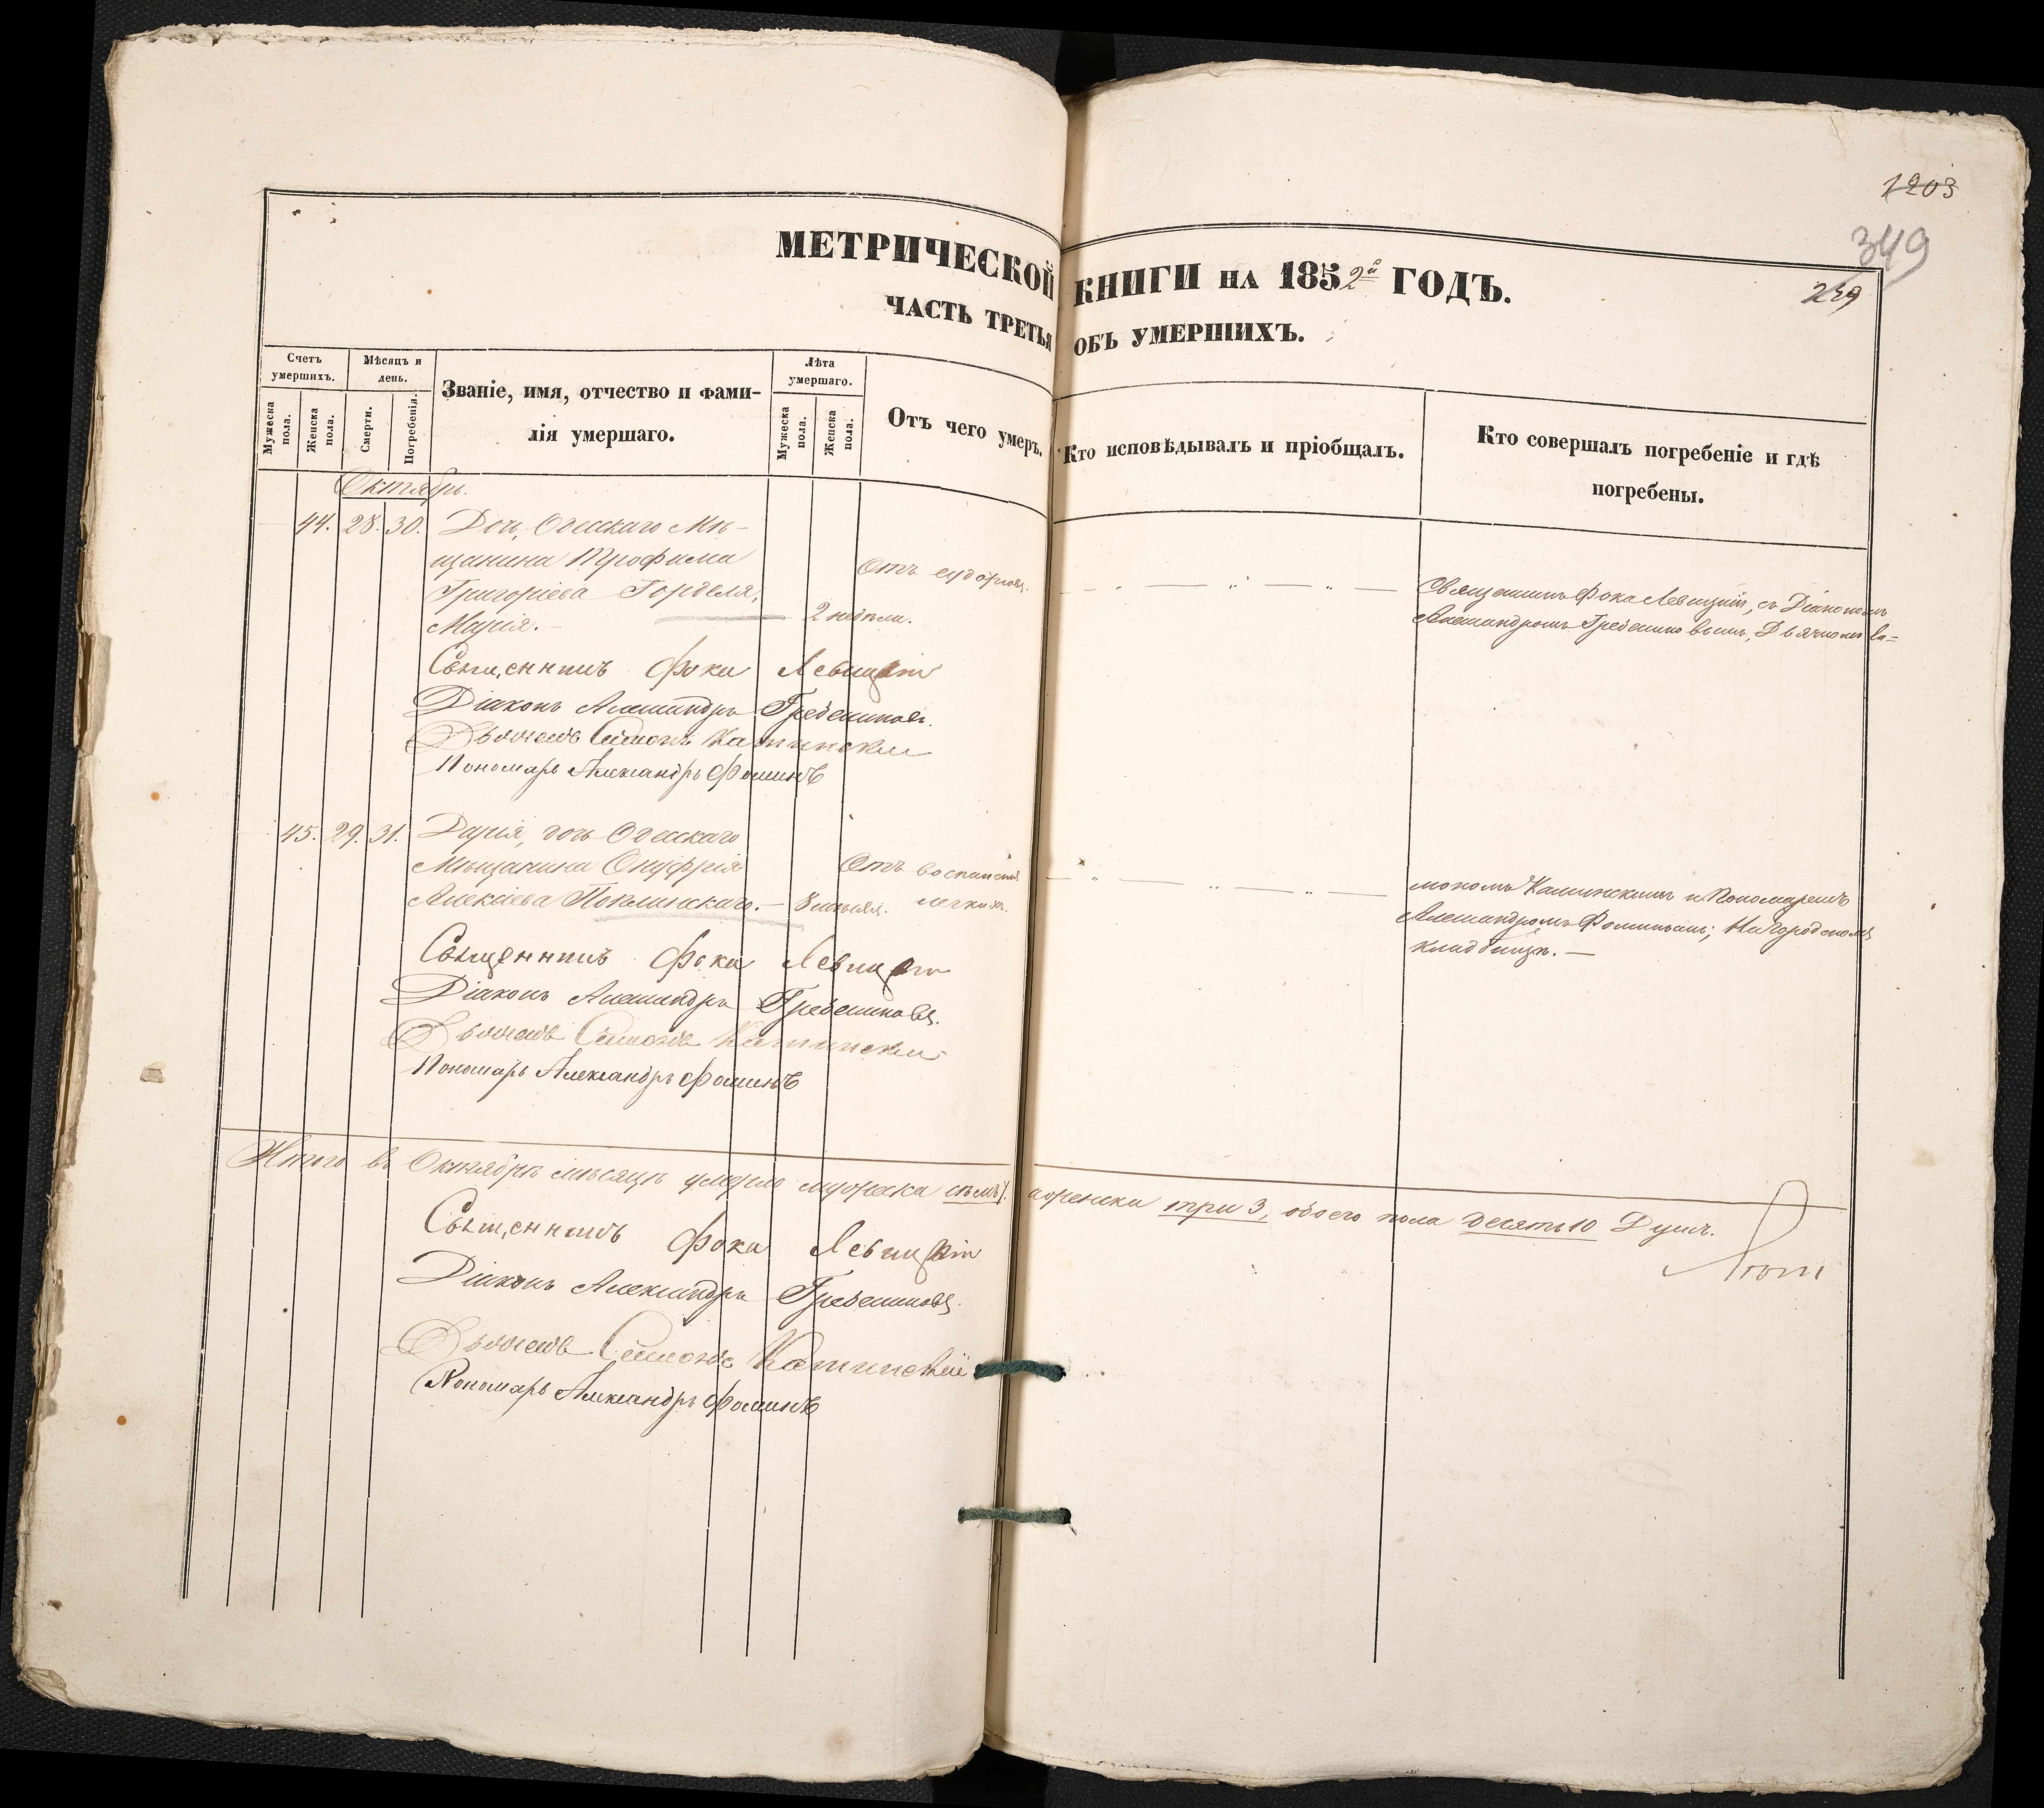 1203
349
249
МЕТРИЧЕСКОЙ КНИГИ НА 1852й ГОДЪ.
ЧАСТЬ ТРЕТЬЯ ОБЪ УМЕРШИХЪ.
Счетъ умершихъ.
Мѣсяцъ и день.
Званіе, имя, отчество и фами-
лія умершаго.
Лѣта умершаго.
Отъ чего умеръ.
Кто исповѣдывалъ и пріобщалъ.
Кто совершалъ погребеніе и гдѣ
погребены.
Мужеска пола.
Женска пола.
Смерти.
Погребенія.
Мужеска пола.
Женска пола.
Октябрь.
44. 28. 30. Дочь Одесскаго Мѣ-
щанина Трофима
Григоріева Горделя,
Марія.
2 недѣли.
Отъ судорогъ.
Священникъ Фока Левицкій, съ Діакономъ
Александромъ Гребениковымъ, Дьячкомъ Си-
Священникъ Фока Левицкій
Діаконъ Александръ Гребениковъ.
Дьячекъ Симонъ Каминскій
Пономарь Александръ Фоминъ
45. 29. 31. Дарія, дочь Одесскаго
Мѣщанина Онуфрія
Алексіева
8 мѣсяц.
Отъ воспаленія
легкихъ.
мономъ Каминскимъ и Пономаремъ
Александромъ Фоминымъ; На городскомъ
кладбищѣ.
Священникъ Фока Левицкій
Діаконъ Александръ Гребениковъ.
Дьячекъ Симонъ Каминскій
Пономарь Александръ Фоминъ
Итого въ Октябрѣ мѣсяцѣ умерло мужеска семь 7. женска три 3, обоего пола десять 10 Душъ.
Священникъ Фока Левицкій
Діаконъ Александръ Гребениковъ.
Дьячекъ Симонъ Каминскій
Пономарь Александръ Фоминъ